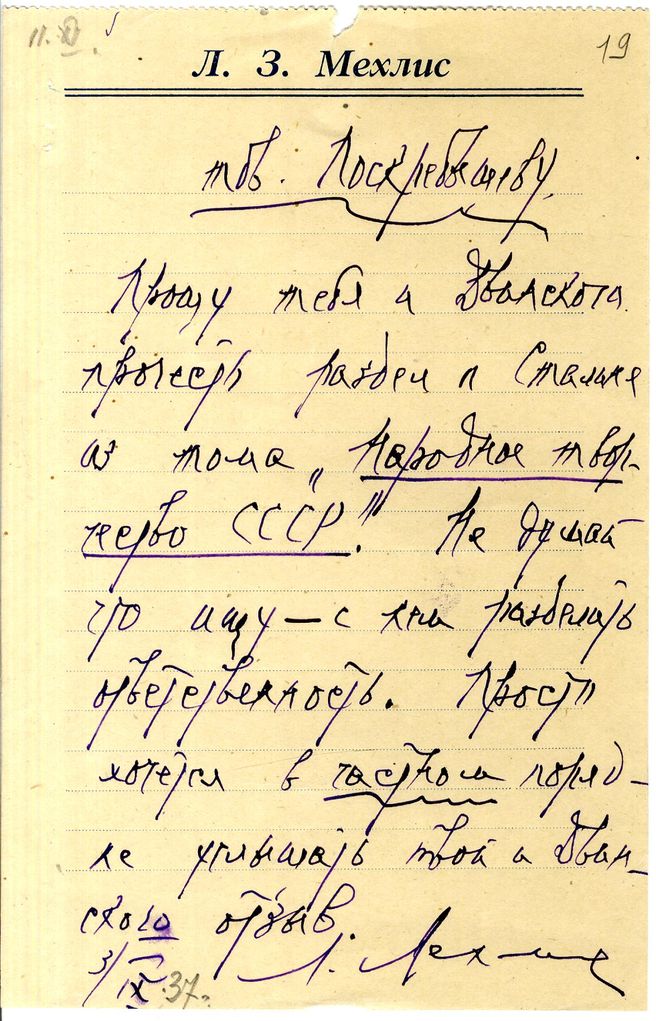 19
Л. З. Мехлис
тов. Поскребышеву.
Прошу тебя и Двинского
прочесть раздел о Сталине
из тома „Народное твор-
чество СССР". Не думай
что ищу — с кем разделить
ответственность. Просто
хочется в частном поряд-
ке услышать твой и Двин-
ского отзыв.
3/IX 37. Л. Мехлис